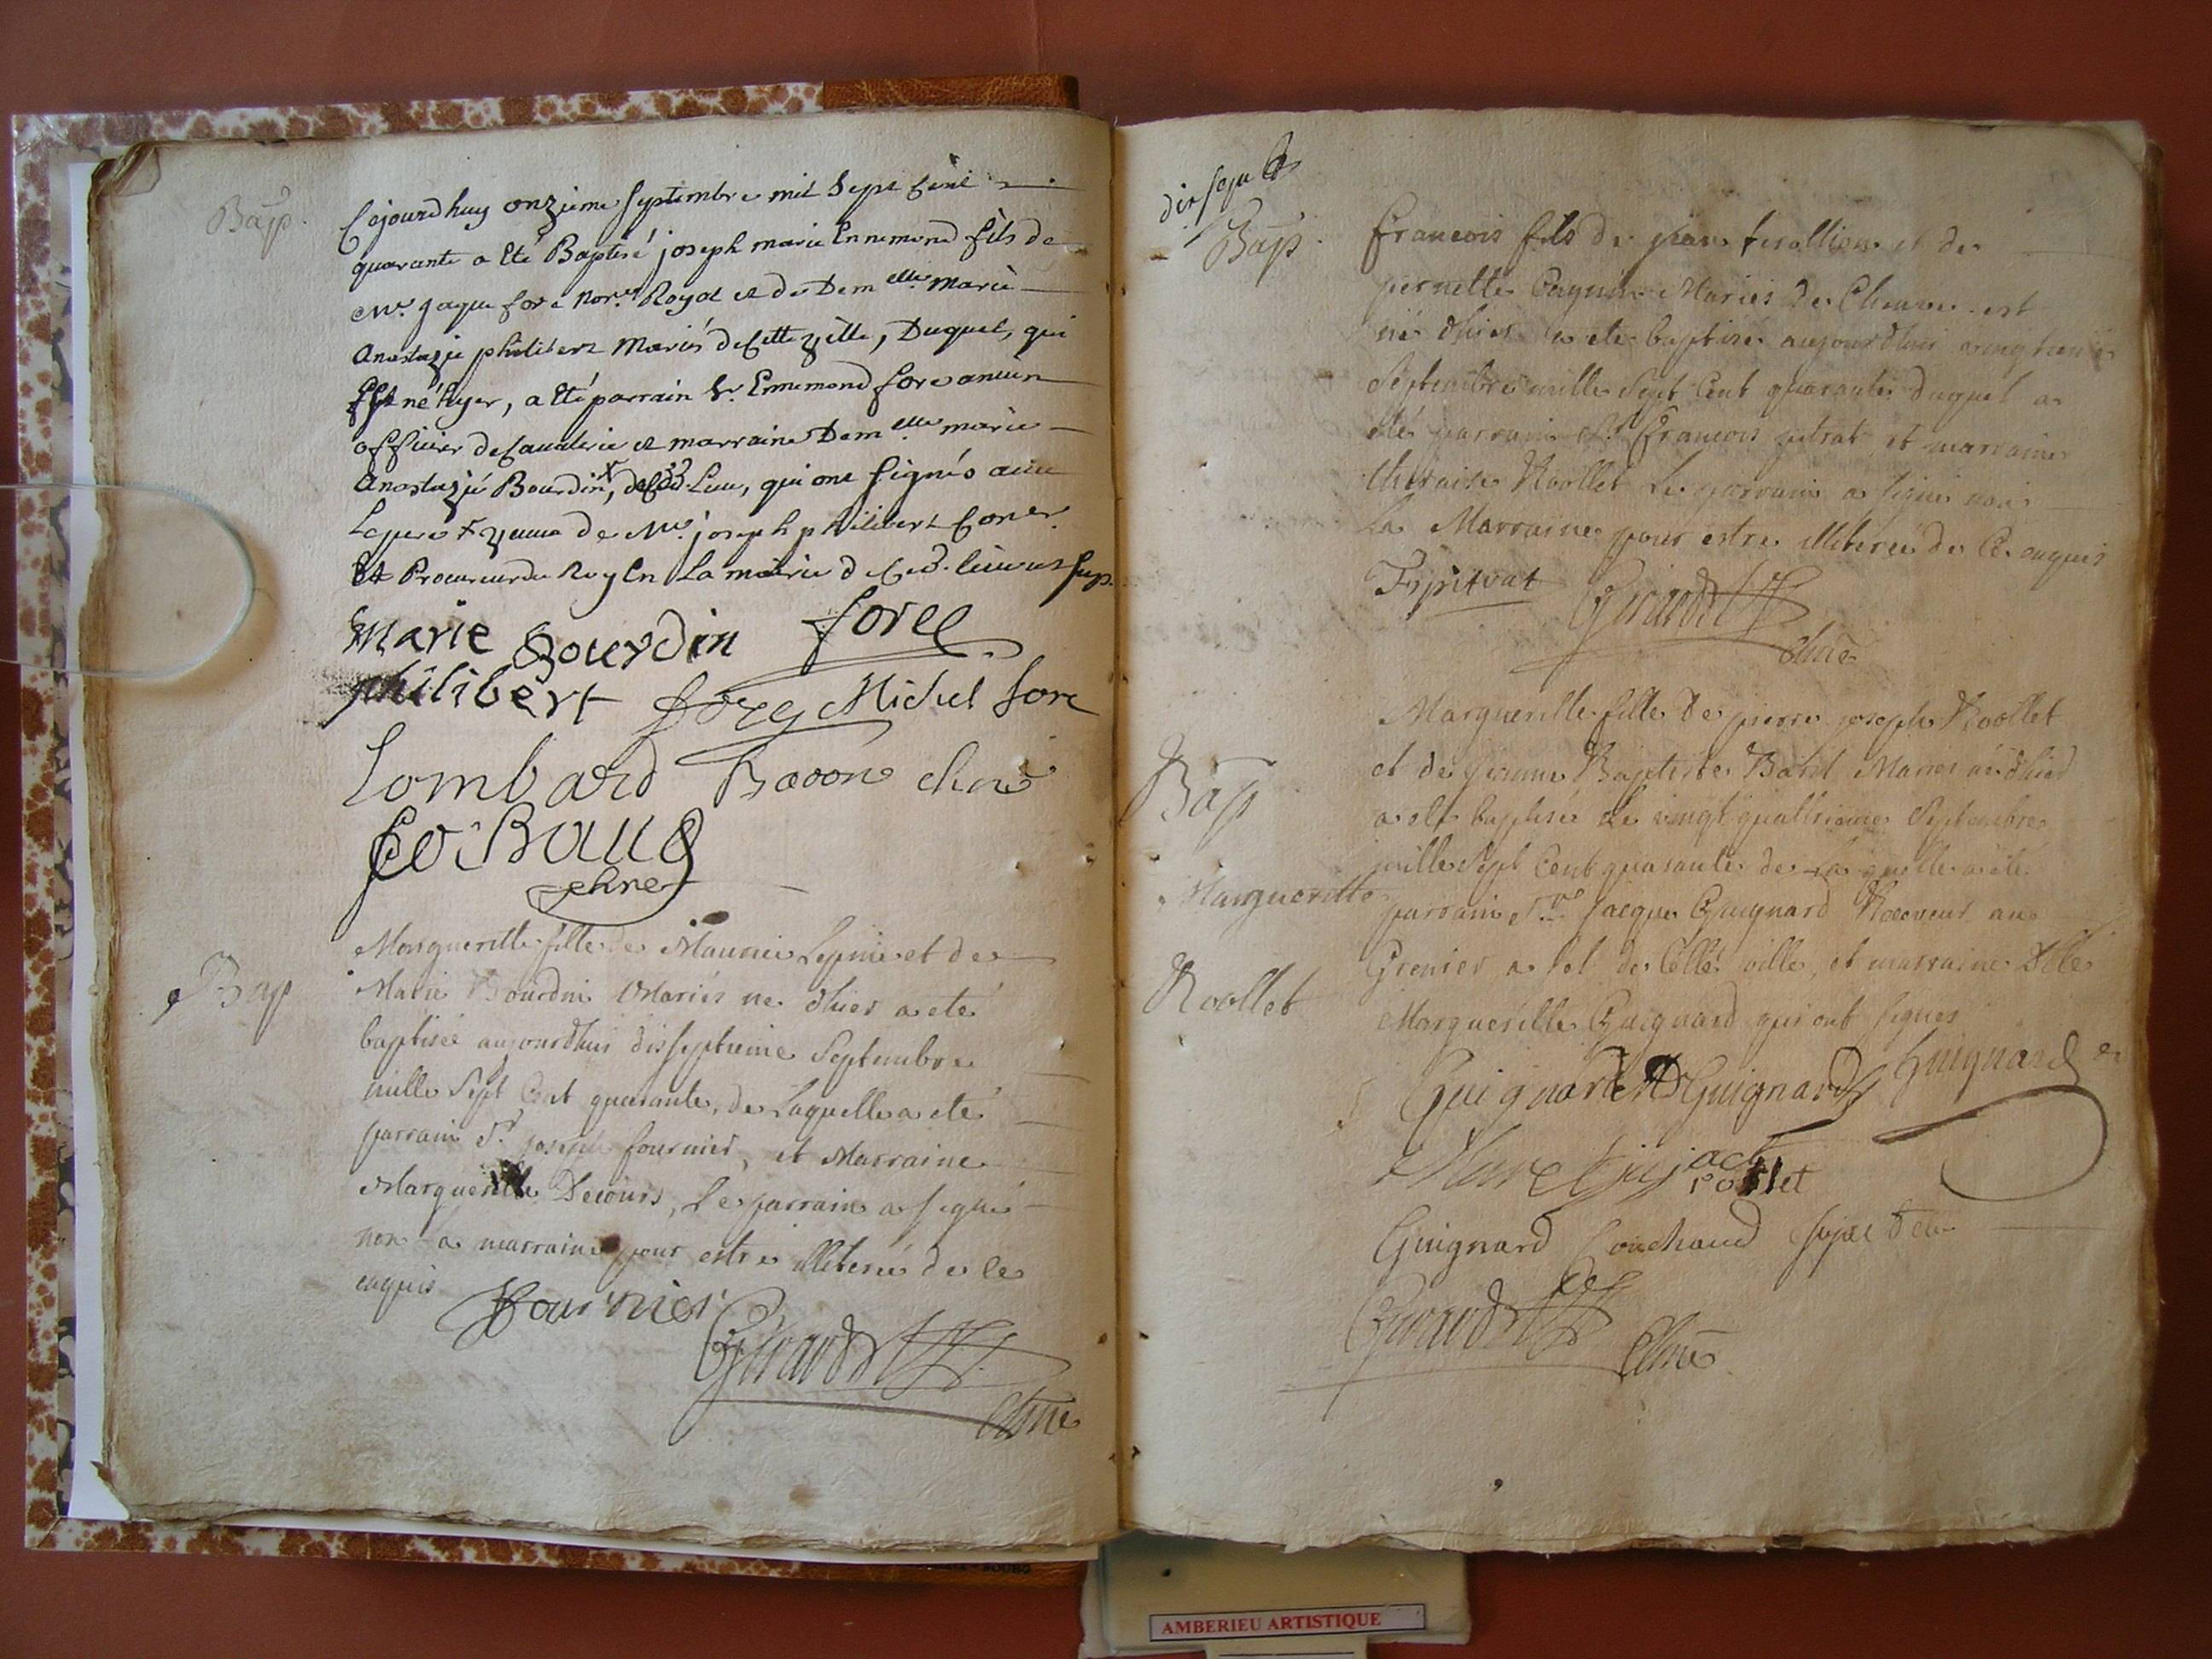 Bap.
Cejourdhuy onzieme septembre mil sept Cent
quarante a Eté Baptisé joseph marie Ennemond fils de
Mr. jaque fore Nore. Royal et de Dem elle marie
Anastazie philibert Mariés de Cette ville, Duquel, qui
Est né hyer, a Eté parrain Sr. Ennemond fore ancien
officier de Cavalerie et marraine Dem elle marie
Anastazie Bourdin, de Lieu, qui ont signés avec
Le pere de Mr. joseph philibert Coner.
Et Procureur du Roy En La mairie de Ced. lieu
Marie Bourdin fore
philibert fore Michel fore
Lombard Bacon chne
chne
Bap
Marguerille fille de Maurice Lepine et de
Marie Bourdin Mariés ne dhier a eté
baptisée aujourdhui disseptieme Septembre
mille Sept Cent quarante, de Laquelle a eté
parrain Sr. joseph fournier, et Marraine
Marguerille Decours, Le parrain a signé
non la marraine pour estre illiterée de ce
enquis
fournier
Girard
chne
Bap.
francois fils de jean et de
pernette Mariés de est
né dhier a eté baptisé aujourdhui
Septembre mille Sept Cent quarante duquel a
été parrain Sr francois pitrat et marraine
theraise Roollet Le parrain a signé non
La Marraine pour estre illiterée de Ce enquis
F pitrat Girard
chne
Bap
Marguerille fille de pierre joseph Roollet
et de jeanne Baptiste Mariés né dhier
a eté baptisée Le vingt quattrieme Septembre
mille Sept Cent quarante de Laquelle a été
Marguerille
parrain Sr. jacque Guignard Receveur au
Roollet
Grenier a sel de Cette ville, et marraine Dlle
Marguerille Guignard qui ont signés
Guignard Guignard Guignard
rollet
Guignard Couchaud
Girard
chne
AMBERIEU ARTISTIQUE